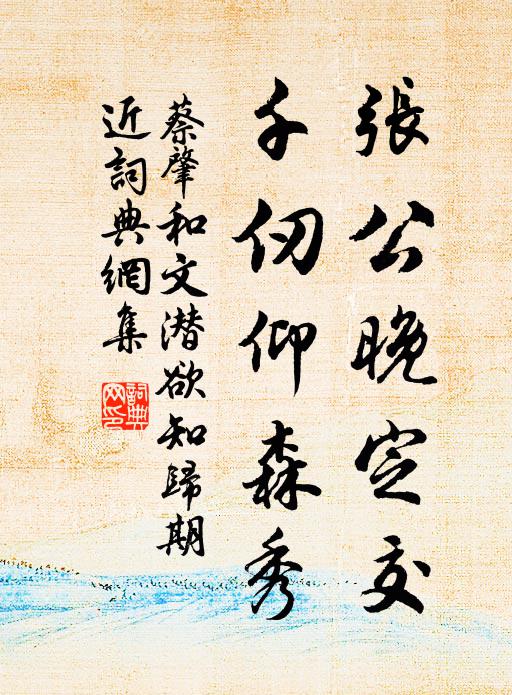 張公晚定交
千仞仰森秀
蔡肇和文潜欲知歸期
近詞典網集
詞典
网印